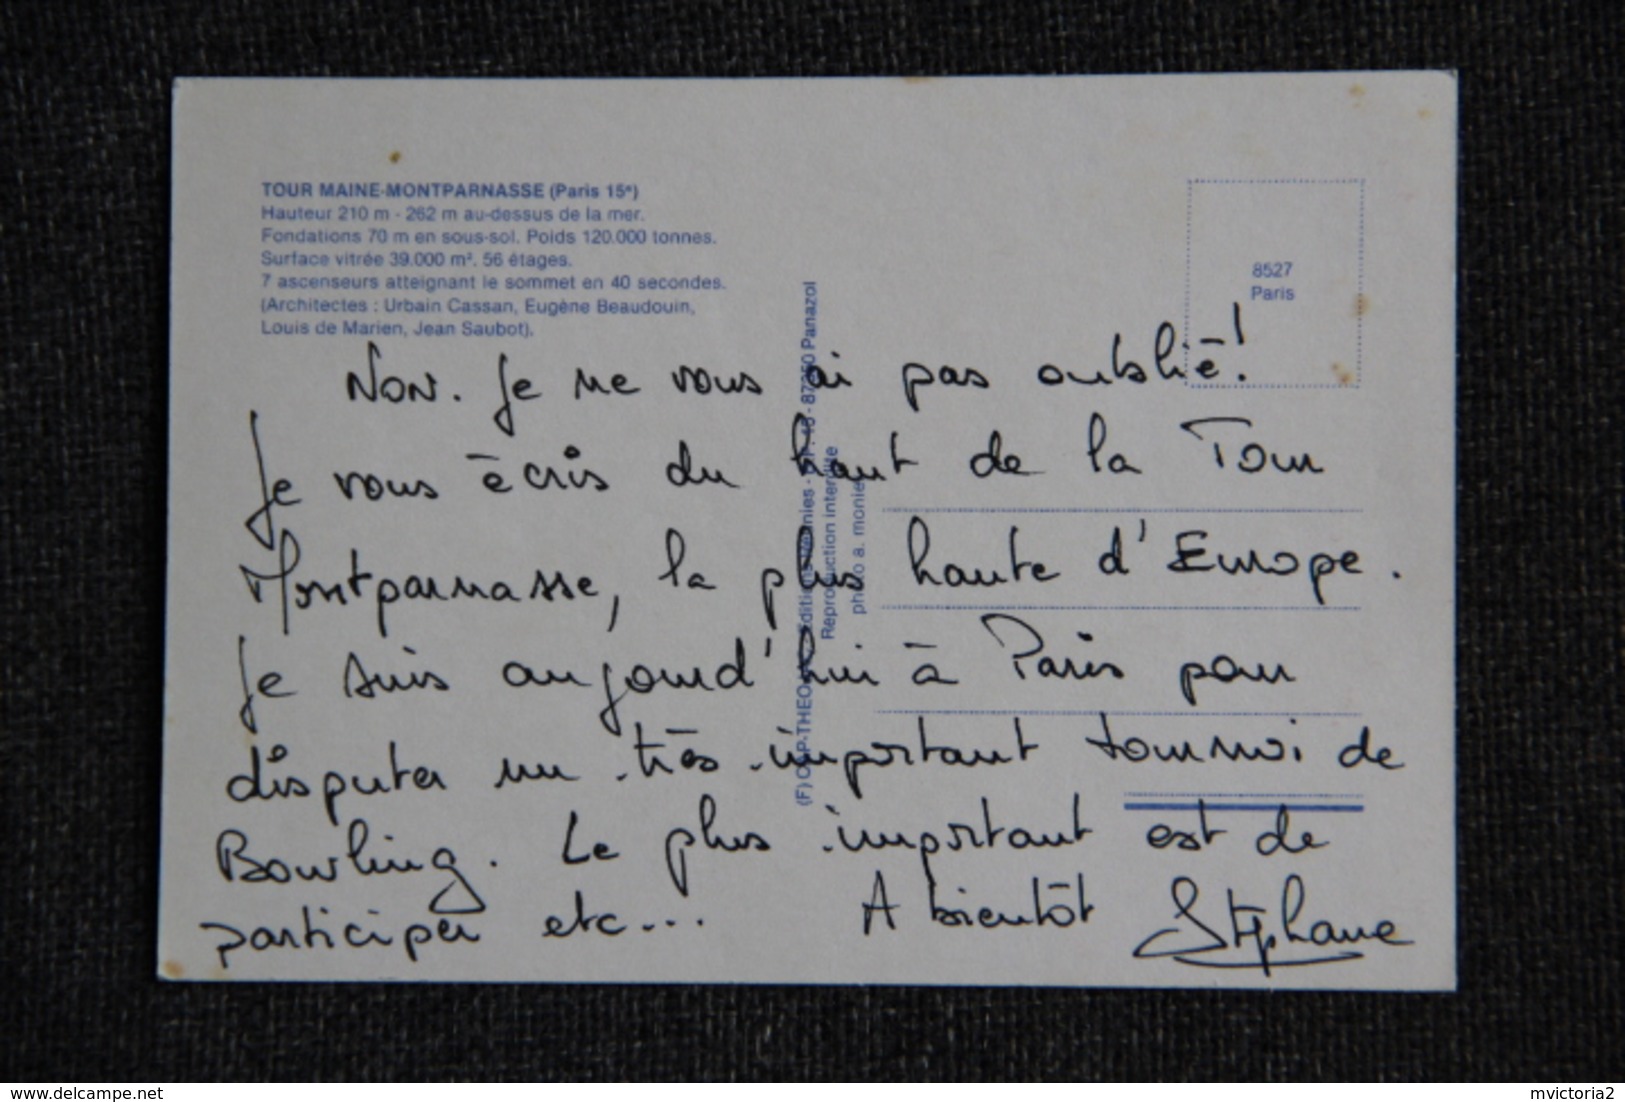 TOUR MAINE-MONTPARNASSE (Paris 15e)
Hauteur 210 m - 262 m au-dessus de la mer.
Fondations 70 m en sous-sol. Poids 120.000 tonnes.
Surface vitrée 39.000 m². 56 étages.
7 ascenseurs atteignant le sommet en 40 secondes.
(Architectes : Urbain Cassan, Eugène Beaudouin,
Louis de Marien, Jean Saubot).
8527
Paris
Non. Je ne vous ai pas oublié !
Je vous écris du haut de la Tour
Montparnasse, la plus haute d'Europe.
Je suis aujourd'hui à Paris pour
disputer un très important tournoi de
Bowling. Le plus important est de
participer etc... A bientôt Stéphane
(F) CAP-THEOJAC - Editions 87350 Panazol
Reproduction interdite
photo a. monier
delcampe.net
mvictoria2